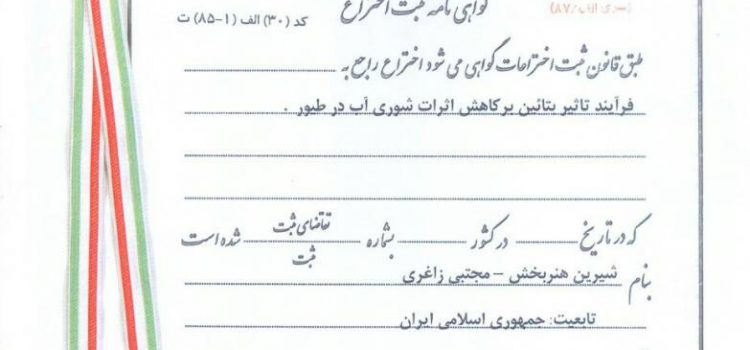 گواهی نامه ثبت اختراع
کد (۳۰) الف (۱-۸۵) ت
طبق قانون ثبت اختراعات گواهی می شود اختراع راجع به
فرآیند تاثیر بتائین بر کاهش اثرات شوری آب در طیور .
که در تاریخ در کشور بشماره تقاضای ثبت شده است
ثبت
بنام شیرین هنربخش – مجتبی زاغری
تابعیت: جمهوری اسلامی ایران